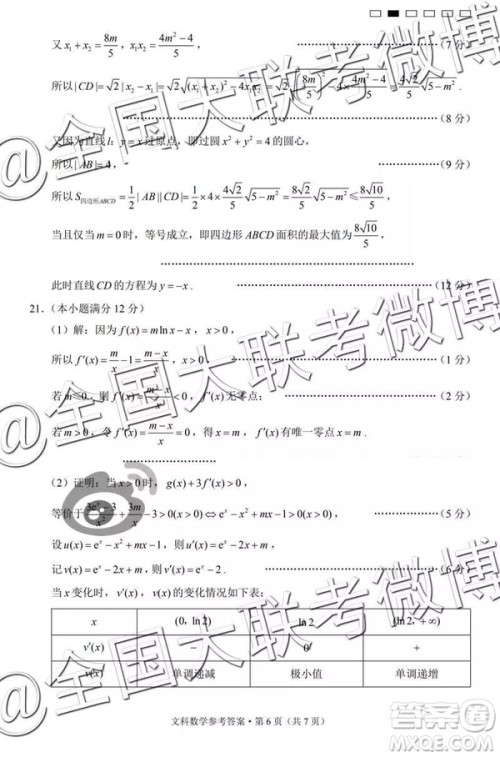 又 x₁+x₂=8m/5, x₁x₂=(4m²−4)/5, (7 分)
所以|CD|=√2|x₂−x₁|=√2√((x₁+x₂)²−4x₁x₂)=√2√((8m/5)²−4×(4m²−4)/5)=(4√2/5)√(5−m²). (8 分)
又因为直线l: y=x过原点, 即过圆 x²+y²=4的圆心,
所以|AB|=4, (9 分)
所以 S四边形ABCD=1/2|AB||CD|=1/2×4×(4√2/5)√(5−m²)=(8√2/5)√(5−m²)≤8√10/5,
当且仅当 m=0时, 等号成立, 即四边形 ABCD 面积的最大值为 8√10/5,
此时直线CD的方程为 y=−x. (12 分)
21. (本小题满分 12 分)
(1) 解: 因为 f(x)=mlnx−x, x>0,
所以 f′(x)=m/x−1=(m−x)/x, x>0 (1 分)
若m≤0, 则 f′(x)=(m−x)/x<0, f′(x)无零点; (2 分)
若 m>0, 令 f′(x)=(m−x)/x=0, 得 x=m, f′(x)有唯一零点 m.
(2) 证明: 当 x>0时, g(x)+3f′(x)>0,
>0(x>0)⇔eˣ−x²+mx−1>0(x>0), (5 分)
设 u(x)=eˣ−x²+mx−1, 则 u′(x)=eˣ−2x+m.
记 v(x)=eˣ−2x+m, 则 v′(x)=eˣ−2.
当 x 变化时, v′(x), v(x)的变化情况如下表:
x (0, ln2) ln2 (ln2, +∞)
v′(x) − 0 +
v(x) 单调递减 极小值 单调递增
文科数学参考答案·第 6 页 (共 7 页)
@全国大联考微博
@全国大联考微博
@全国大联考微博
答案圈
MXQE.COM